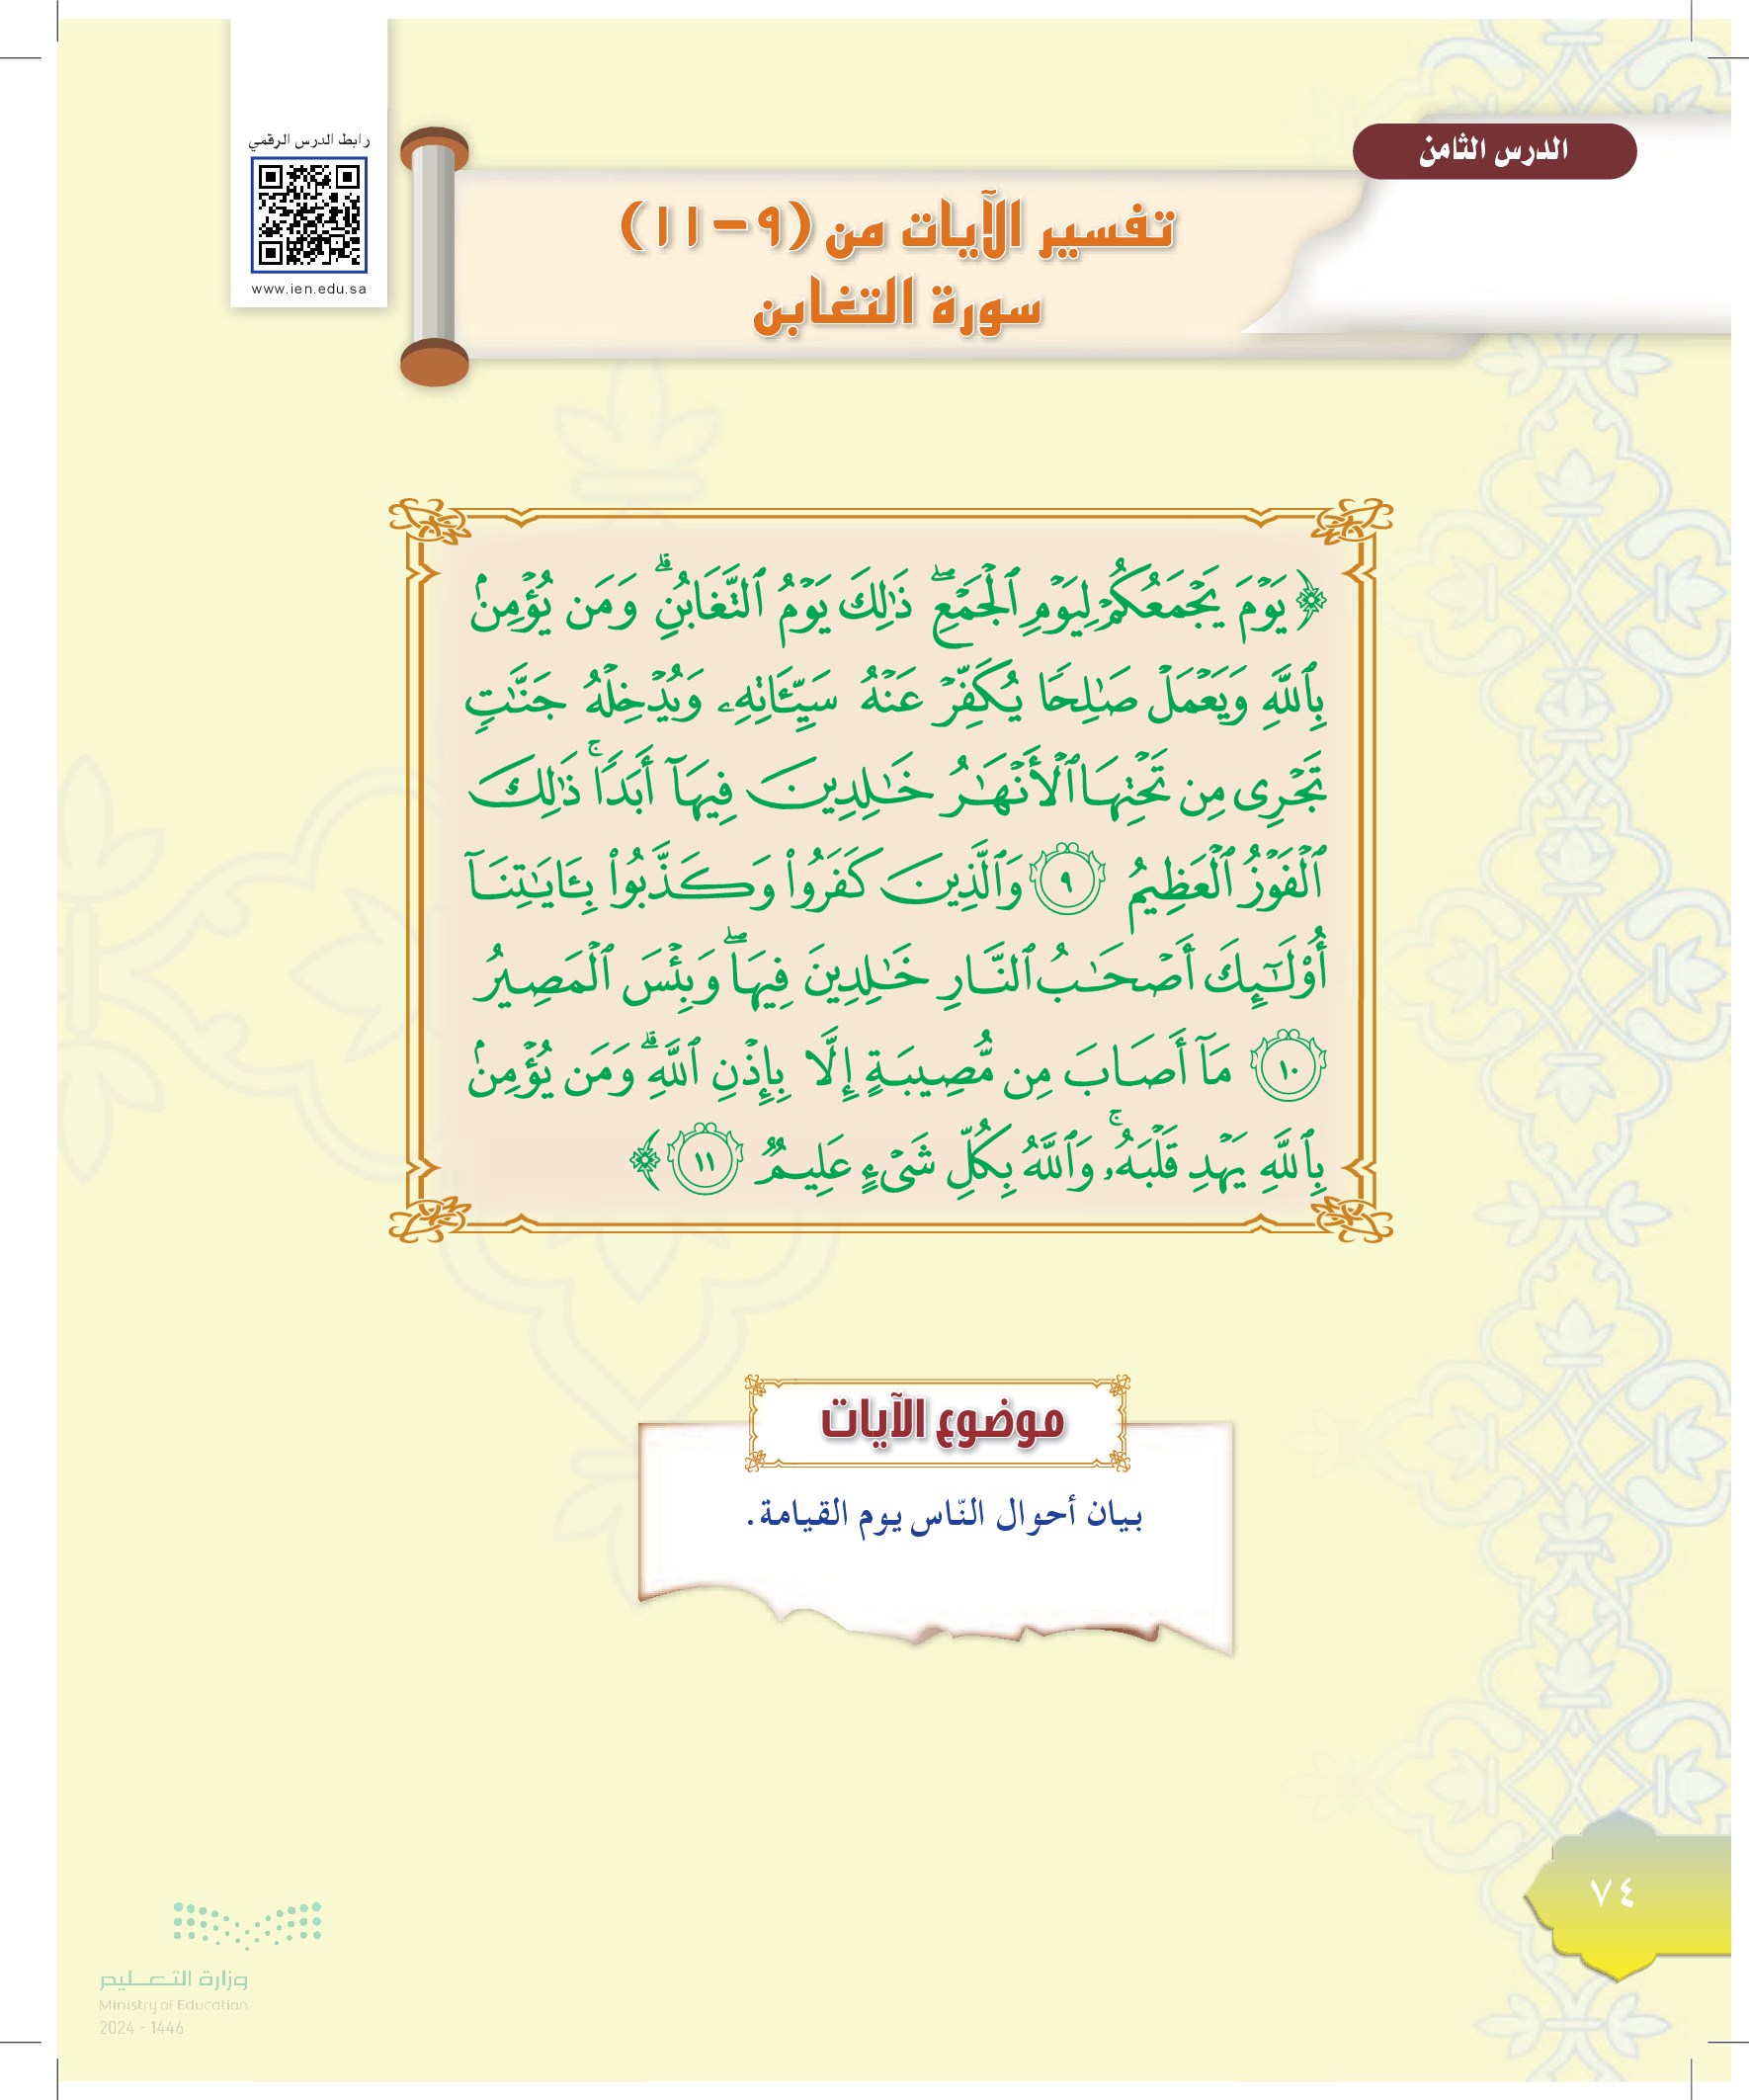 الدرس الثامن
رابط الدرس الرقمي
www.ien.edu.sa
تفسير الآيات من (٩-١١)
سورة التغابن
﴿ يَوْمَ يَجْمَعُكُمْ لِيَوْمِ ٱلْجَمْعِ ۖ ذَٰلِكَ يَوْمُ ٱلتَّغَابُنِ ۗ وَمَن يُؤْمِنۢ
بِٱللَّهِ وَيَعْمَلْ صَٰلِحًا يُكَفِّرْ عَنْهُ سَيِّـَٔاتِهِۦ وَيُدْخِلْهُ جَنَّٰتٍ
تَجْرِى مِن تَحْتِهَا ٱلْأَنْهَٰرُ خَٰلِدِينَ فِيهَآ أَبَدًا ۚ ذَٰلِكَ
ٱلْفَوْزُ ٱلْعَظِيمُ ٩ وَٱلَّذِينَ كَفَرُوا۟ وَكَذَّبُوا۟ بِـَٔايَٰتِنَآ
أُو۟لَٰٓئِكَ أَصْحَٰبُ ٱلنَّارِ خَٰلِدِينَ فِيهَا ۖ وَبِئْسَ ٱلْمَصِيرُ
١٠ مَآ أَصَابَ مِن مُّصِيبَةٍ إِلَّا بِإِذْنِ ٱللَّهِ ۗ وَمَن يُؤْمِنۢ
بِٱللَّهِ يَهْدِ قَلْبَهُۥ ۚ وَٱللَّهُ بِكُلِّ شَىْءٍ عَلِيمٌ ١١ ﴾
موضوع الآيات
بيان أحوال النّاس يوم القيامة.
٧٤
وزارة التعليم
Ministry of Education
2024 - 1446